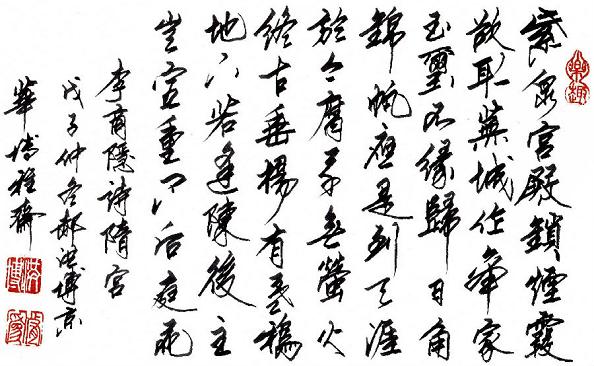 紫泉宮殿鎖煙霞
欲取蕪城作帝家
玉璽不緣歸日角
錦帆應是到天涯
於今腐草無螢火
終古垂楊有暮鴉
地下若逢陳後主
豈宜重问后庭花
李商隱詩隋宮
戊子仲冬郝洪博京
華博雅齋
樂趣